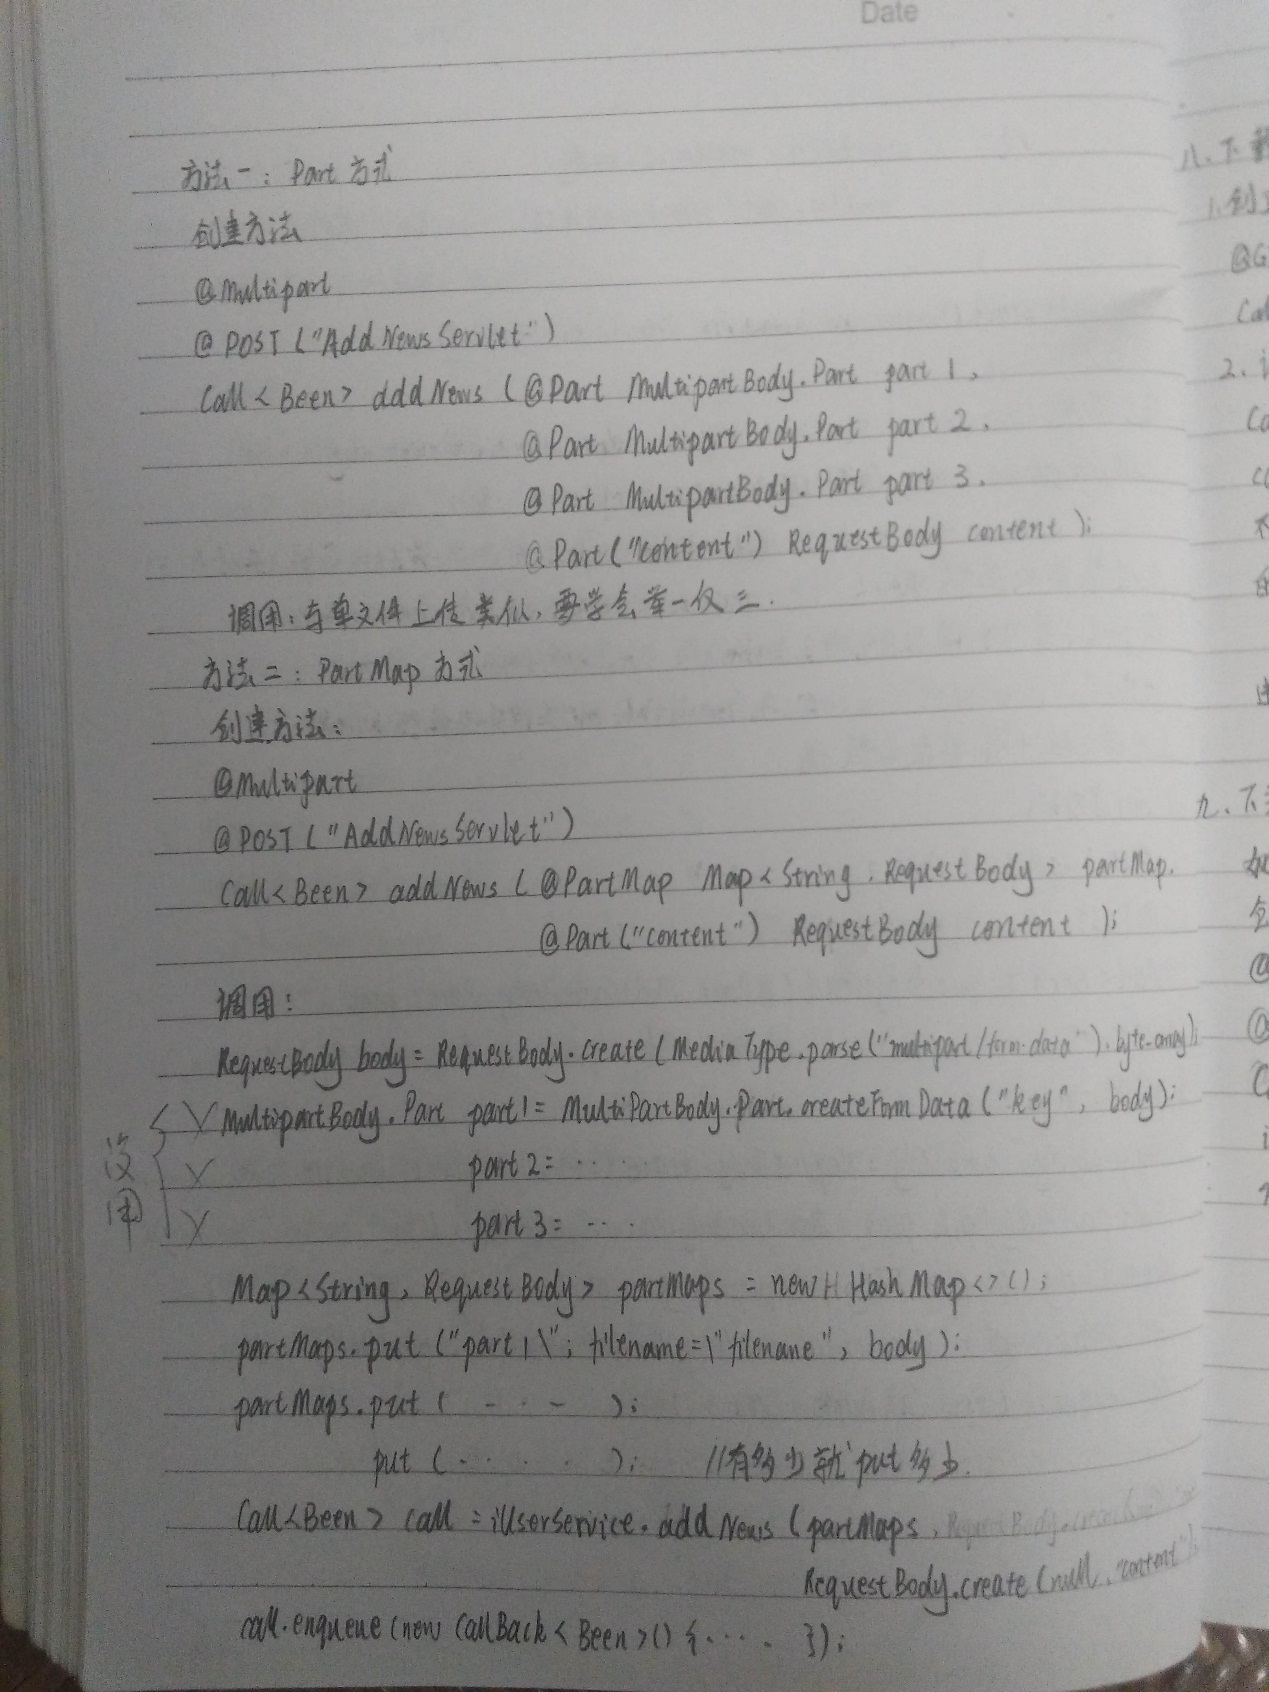 Date
方法一：Part 方式
创建方法
@Multipart
@POST ("AddNewsServlet")
Call<Been> addNews (@Part MultipartBody.Part part1,
@Part MultipartBody.Part part2,
@Part MultipartBody.Part part3,
@Part("content") RequestBody content);
调用：与单文件上传类似，要学会举一仅三.
方法二：PartMap 方式
创建方法：
@Multipart
@POST ("AddNewsServlet")
Call<Been> addNews (@PartMap Map<String, RequestBody> partMap,
@Part ("content") RequestBody content );
调用：
RequestBody body = RequestBody.create (MediaType.parse("multipart/form-data"), byte-array);
没用
MultipartBody.Part part1 = MultiPartBody.Part.createFormData ("key", body);
part2 = ....
part3 = ....
Map<String, RequestBody> partMaps = new HashMap<>();
partMaps.put ("part1\"; filename=\"filename", body);
partMaps.put ( - · - );
put ( · · · · ); //有多少就put多少.
Call<Been> call = iUserService.addNews (partMaps,
RequestBody.create (null, "content")
call.enqueue (new CallBack<Been>() {.... });
八、下载
1.创
@G
Cal
2.
Ca
九、下